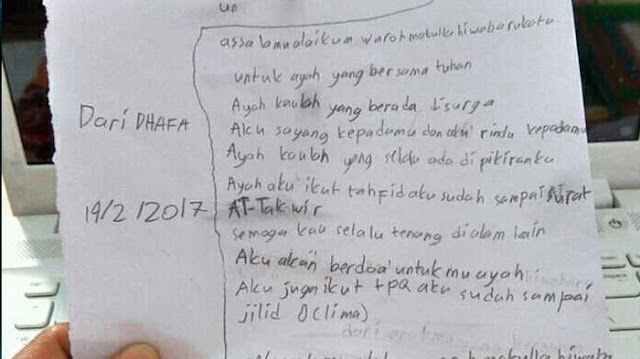 un
assalamualaikum warohmatullahiwabarukatu
untuk ayah yang bersama tuhan
Ayah kaulah yang berada disurga
Aku sayang kepadamu dan aku rindu kepadamu
Ayah kaulah yang selalu ada dipikiranku
Ayah aku ikut tahfid aku sudah sampai surat
AT-Takwir
semoga kau selalu tenang dialam lain
Aku akan berdoa' untukmu ayah
Aku juga ikut tPQ aku sudah sampai
jilid 5(lima)
Dari DHAFA
19/2/2017